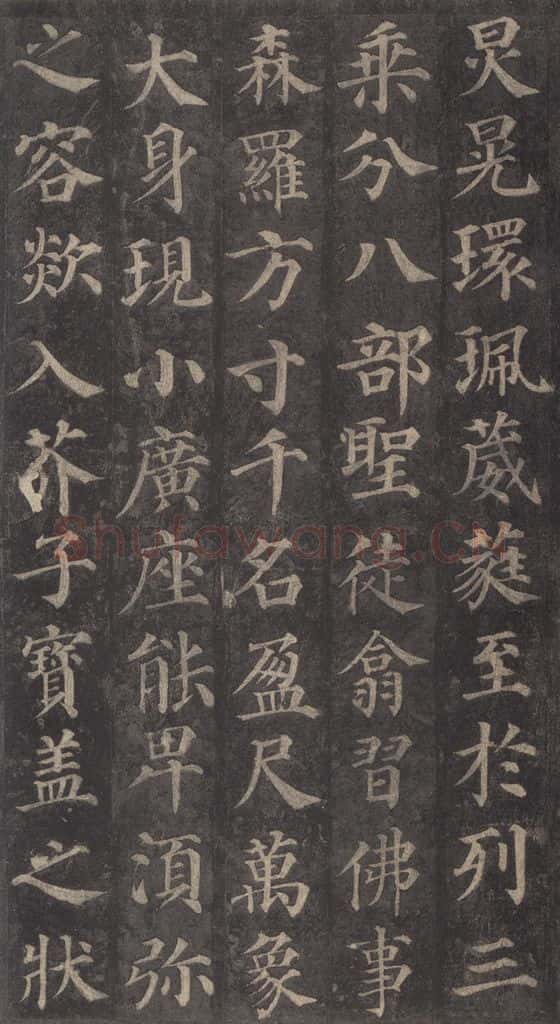 炅晃環珮葳蕤至於列三
乘分八部聖徒翕習佛事
森羅方寸千名盈尺萬象
大身現小廣座能卑湏弥
之容欻入芥子寶盖之狀
Shufawang.cn